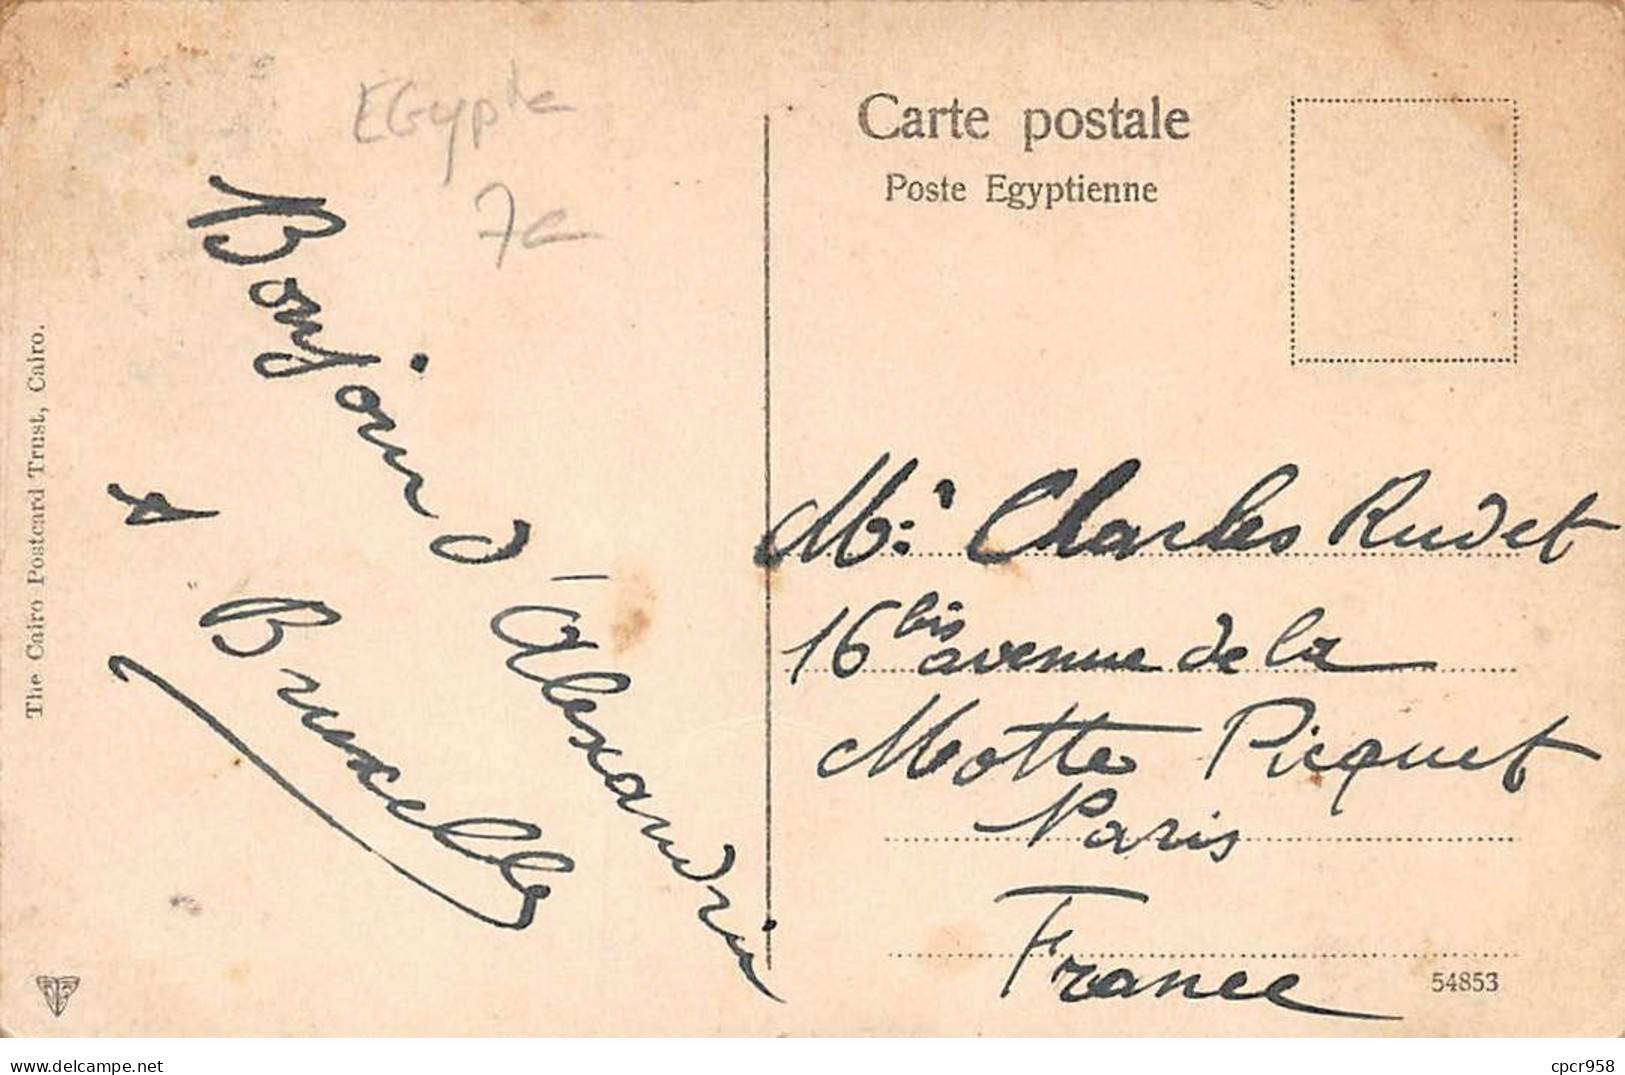 EGypte
7e
Bonjour d'Alexandrie
A Bruxelles
The Cairo Postcard Trust, Cairo.
Carte postale
Poste Egyptienne
Mr Charles Rudet
16 bis avenue de la
Motte Picquet
Paris
France
54853
website: delcampe.net
cpcr958